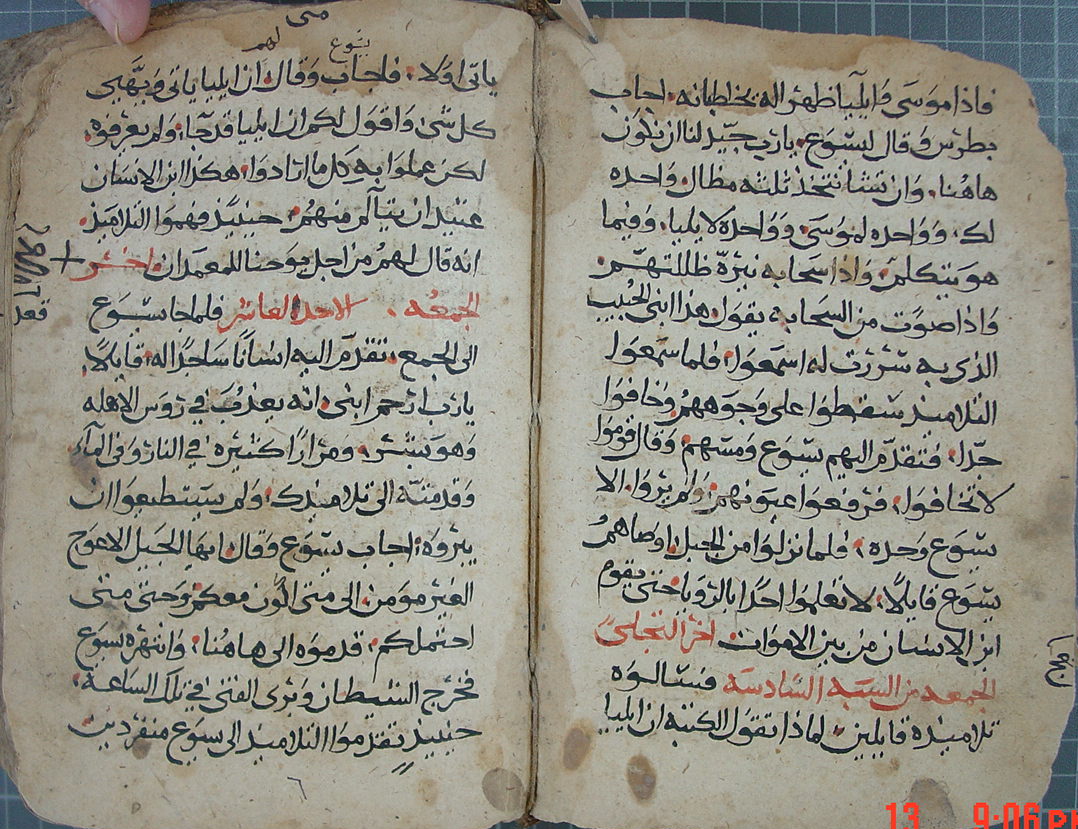 فاذا موسى وايليا ظهرا له يخاطبانه. اجاب
بطرس وقال ليسوع. يا رب جيد لنا ان نكون
هاهنا. وان تشا نتخذ ثلثه مظال. واحده
لك. وواحده لموسى. وواحده لايليا. وفيما
هو يتكلم. واذا سحابه نيره ظللتهم.
واذا صوت من السحابه يقول هذا ابنى الحبيب
الذى به سررت له اسمعوا. فلما سمعوا
التلاميذ سقطوا على وجوههم وخافوا
جدا. فتقدم اليهم يسوع ومسهم وقال قوموا
لا تخافوا. فرفعوا عيونهم. ولم يروا. الا
يسوع وحده. فلما نزلوا من الجبل اوصاهم
يسوع قايلا. لا تعلموا احدا بالرويا حتى يقوم
ابن الانسان من بين الاموات. اخر التجلى
الجمعه من السبه السادسه فسالوه
تلاميذه قايلين. لماذا تقول الكتبه ان ايليا
متى
يسوع لهم
ياتى اولا. فاجاب وقال ان ايليا ياتى ويهيى
كل شى. واقول لكم ان ايليا قد جا. ولم يعرفوه.
لكن عملوا به كل ما ارادوا. هكذا ابن الانسان
عتيد ان يتالم منهم. حينيذ فهموا التلاميذ.
انه قال لهم من اجل يوحنا المعمدان
الجمعه. الاحد العاشر فلما جا يسوع
الى الجمع. تقدم اليه انسانا ساجدا له. قايلا.
يا رب ارحم ابنى. انه يعذب فى روس الاهله
وهو بشر. ومرارا كثيره فى النار وفى المآء.
وقدمته الى تلاميذك. ولم يستطيعوا ان
يبروه. اجاب يسوع وقال. ايها الجيل الاعوج
الغير مومن. الى متى اكون معكم. وحتى متى
احتملكم. قدموه الى هاهنا. وانتهره يسوع
فخرج الشيطان. وبرى الفتى فى تلك الساعه.
حينيذ تقدموا التلاميذ الى يسوع منفردين
13 9:06 PM